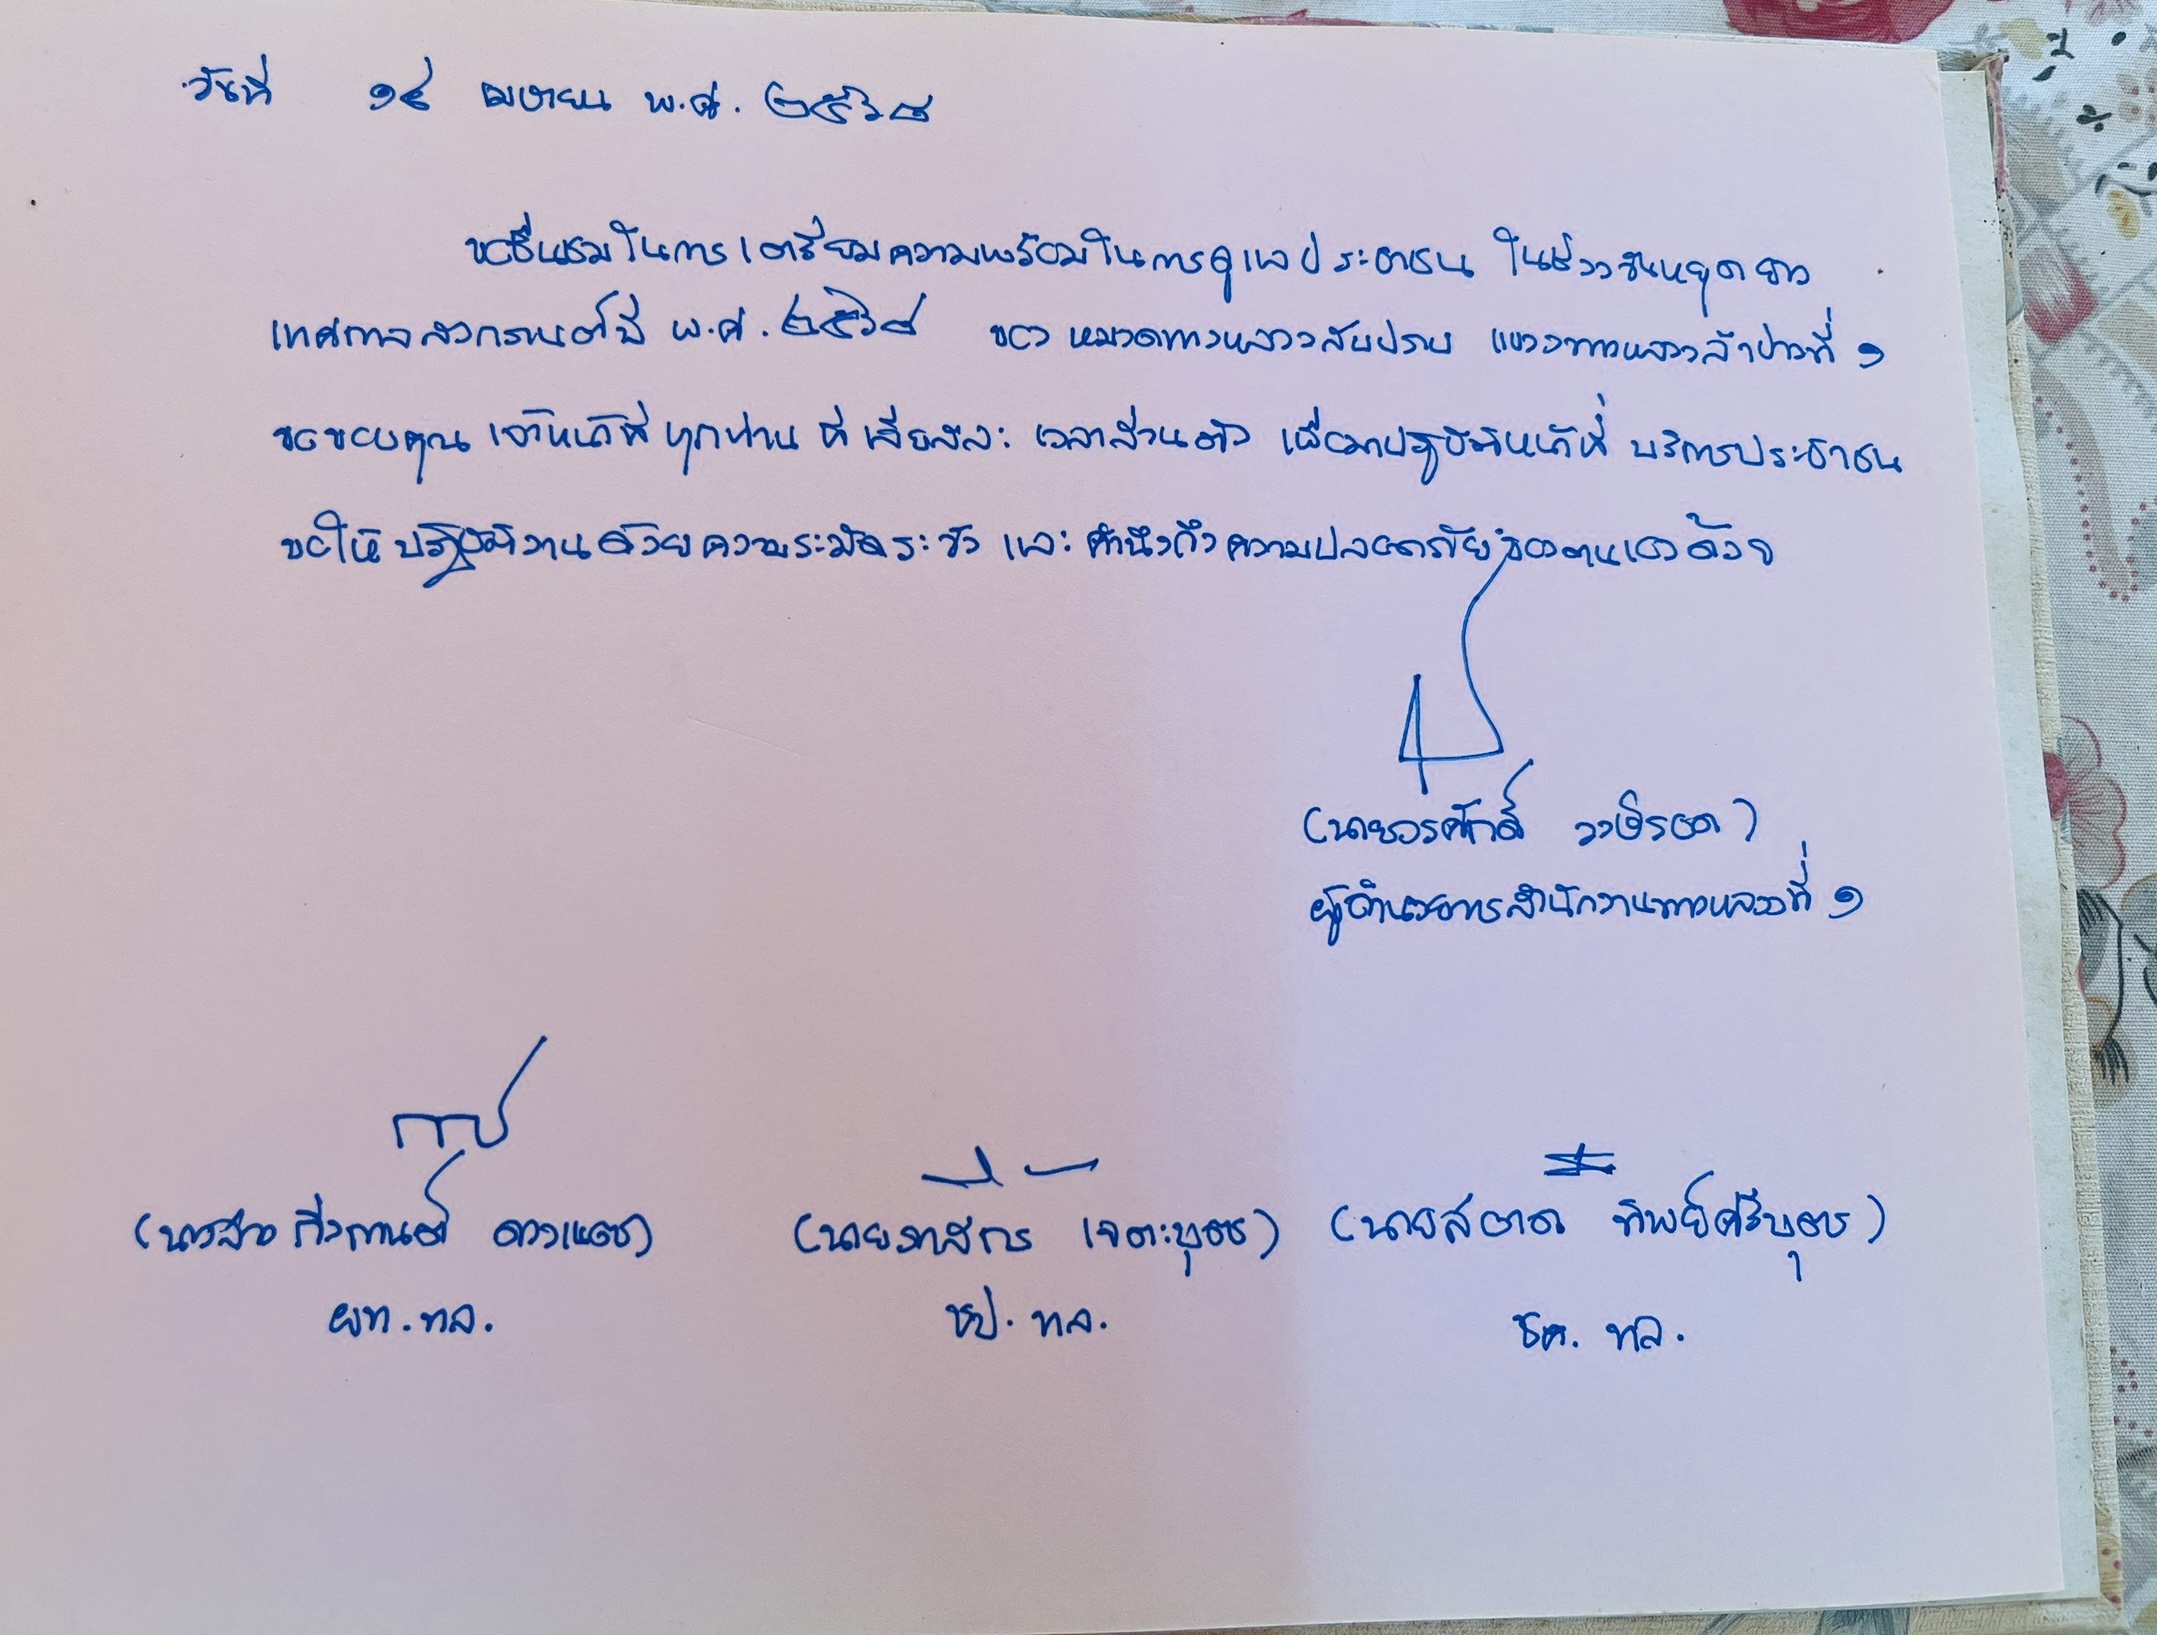 วันที่ ๑๔ เมษายน พ.ศ. ๒๕๖๘
ขอชื่นชมในการเตรียมความพร้อมในการดูแลประชาชน ในช่วงวันหยุดยาว
เทศกาลสงกรานต์ปี พ.ศ. ๒๕๖๘ ของ หมวดทางหลวงสบปราบ แขวงทางหลวงลำปางที่ ๑
ขอขอบคุณ เจ้าหน้าที่ ทุกท่าน ที่ เสียสละ เวลาส่วนตัว เพื่อมาปฏิบัติหน้าที่ บริการประชาชน
ขอให้ ปฏิบัติงานด้วยความระมัดระวัง และ คำนึงถึงความปลอดภัยของตนเองด้วย
(นายวรศักดิ์ )
ผู้อำนวยการสำนักงานทางหลวงที่ ๑
(นางสาว กิ่งกานต์ ) (นาย เจตะบุตร) (นายสอาด ทิพย์ศรีบุตร)
ผท.ทล. ชป. ทล. ทล.